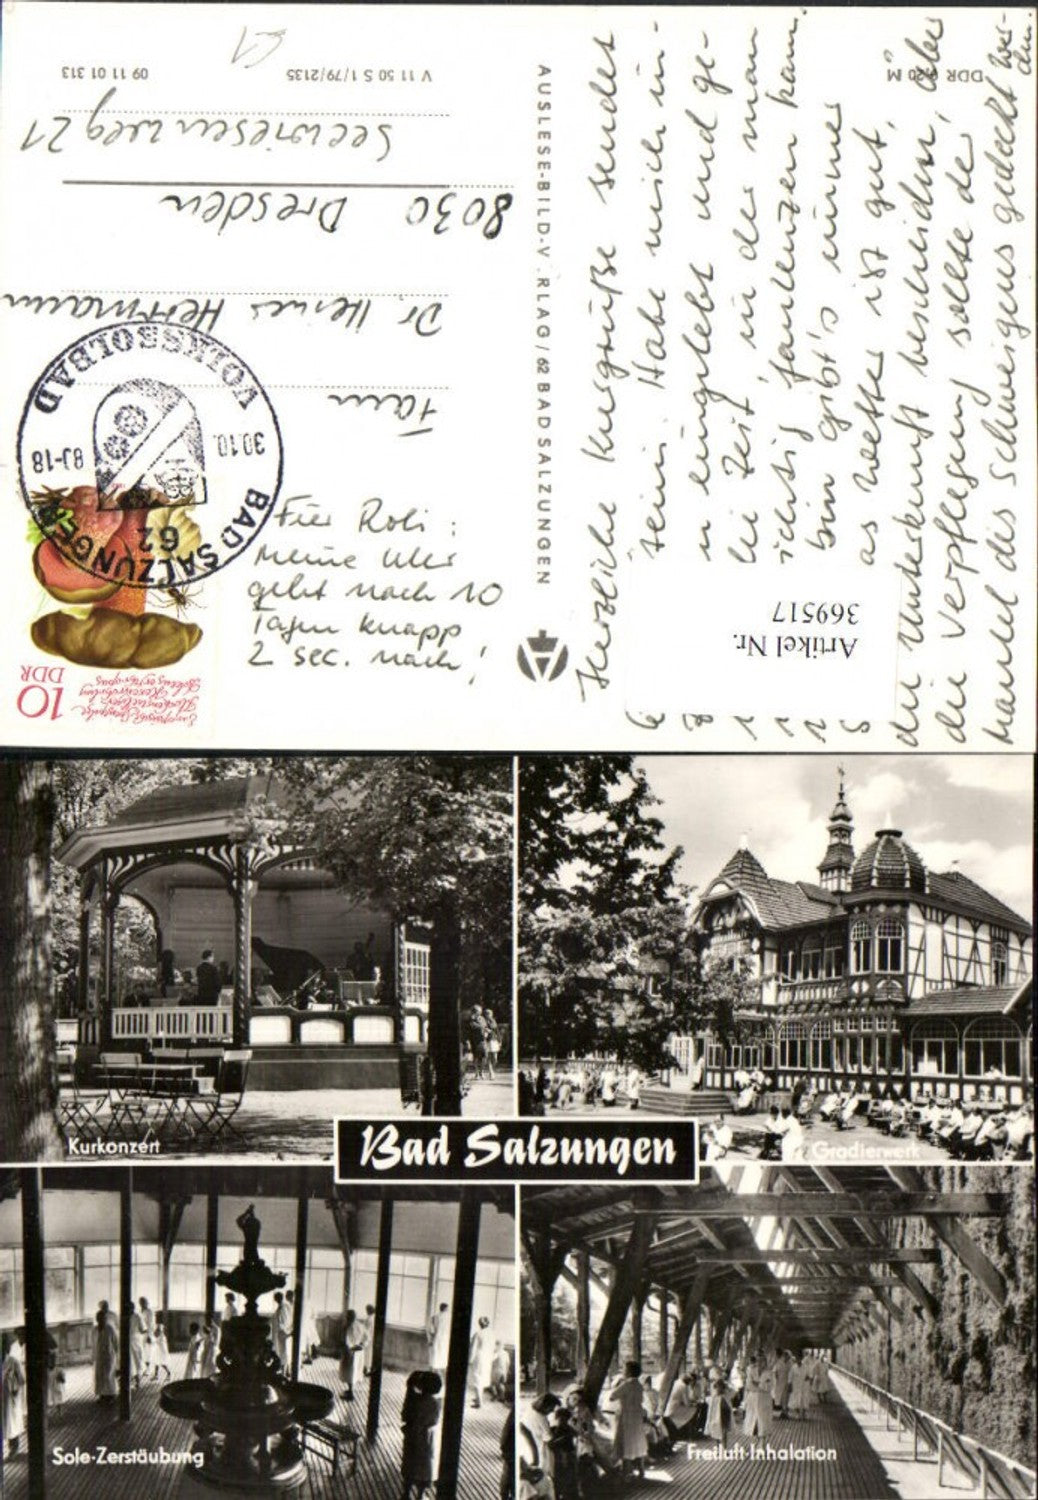 Herzliche Kurgrüße sendet
Heini. Habe mich in-
eingelebt und ge-
die Zeit in der man
richtig faulenzen kann.
gibt's immer
as Wetter ist gut,
die Unterkunft bescheiden, aber
die Verpflegung sollte der
Mantel des Schweigens gedeckt wer-
den.
Für Robi:
Meine Uhr
geht nach 10
Tagen knapp
2 sec. nach!
Fam
Dr. Heinz Herrmann
8030 Dresden
Seewiesenweg 21
V 11 50 S 1/79/2135
09 11 01 313
DDR 0,20 M
AUSLESE-BILD-V.RLAG/62 BAD SALZUNGEN
Artikel Nr.
369517
62
BAD SALZUNGEN
VOLKSSOLBAD
30.10.
80-18
10
DDR
Bad Salzungen
Kurkonzert
Gradierwerk
Sole-Zerstäubung
Freiluft-Inhalation